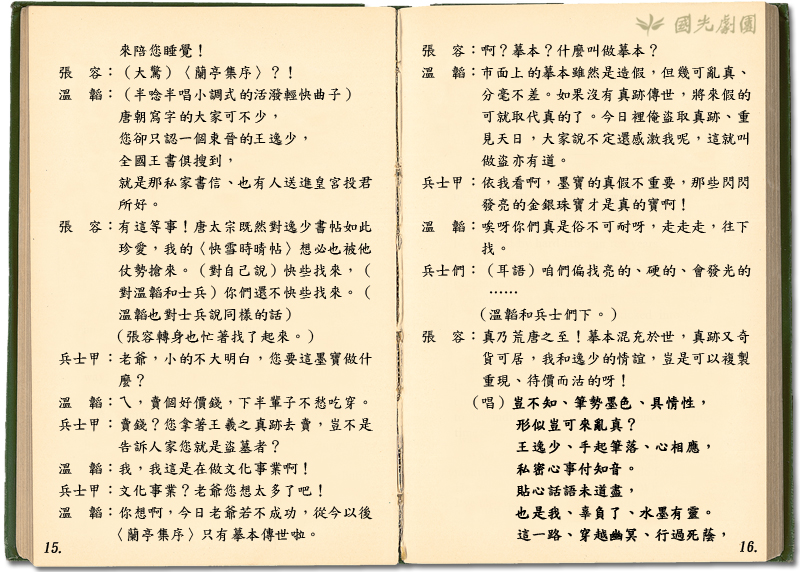 來陪您睡覺！
張　容：（大驚）〈蘭亭集序〉？！
溫　韜：（半唸半唱小調式的活潑輕快曲子）
唐朝寫字的大家可不少，
您卻只認一個東晉的王逸少，
全國王書俱搜到，
就是那私家書信、也有人送進皇宮投君
所好。
張　容：有這等事！唐太宗既然對逸少書帖如此
珍愛，我的〈快雪時晴帖〉想必也被他
仗勢搶來。（對自己說）快些找來，（
對溫韜和士兵）你們還不快些找來。（
溫韜也對士兵說同樣的話）
（張容轉身也忙著找了起來。）
兵士甲：老爺，小的不大明白，您要這墨寶做什
麼？
溫　韜：ㄟ，賣個好價錢，下半輩子不愁吃穿。
兵士甲：賣錢？您拿著王羲之真跡去賣，豈不是
告訴人家您就是盜墓者？
溫　韜：我，我這是在做文化事業啊！
兵士甲：文化事業？老爺您想太多了吧！
溫　韜：你想啊，今日老爺若不成功，從今以後
〈蘭亭集序〉只有摹本傳世啦。
15.
國光劇團
張　容：啊？摹本？什麼叫做摹本？
溫　韜：市面上的摹本雖然是造假，但幾可亂真、
分毫不差。如果沒有真跡傳世，將來假的
可就取代真的了。今日裡俺盜取真跡、重
見天日，大家說不定還感激我呢，這就叫
做盜亦有道。
兵士甲：依我看啊，墨寶的真假不重要，那些閃閃
發亮的金銀珠寶才是真的寶啊！
溫　韜：唉呀你們真是俗不可耐呀，走走走，往下
找。
兵士們：（耳語）咱們偏找亮的、硬的、會發光的
……
（溫韜和兵士們下。）
張　容：真乃荒唐之至！摹本混充於世，真跡又奇
貨可居，我和逸少的情誼，豈是可以複製
重現、待價而沽的呀！
（唱）豈不知、筆勢墨色、具情性，
形似豈可來亂真？
王逸少、手起筆落、心相應，
私密心事付知音。
貼心話語未道盡，
也是我、辜負了、水墨有靈。
這一路、穿越幽冥、行過死蔭，
16.